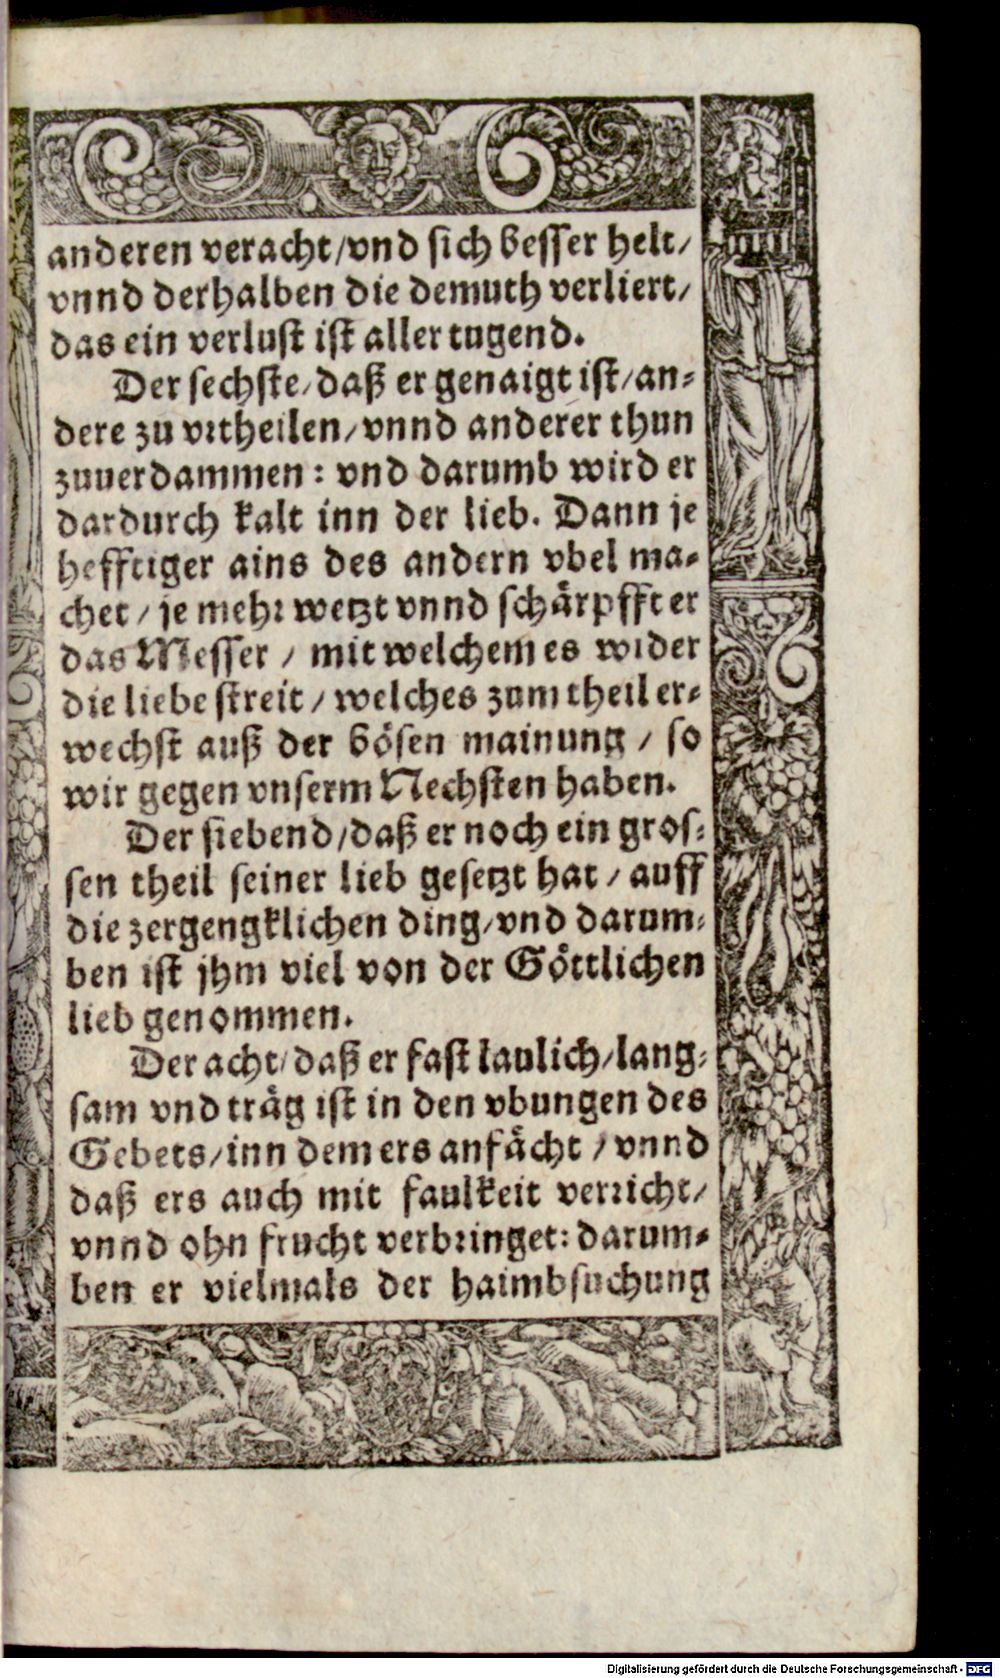 anderen veracht/vnd sich besser helt/
vnnd derhalben die demuth verliert/
das ein verlust ist aller tugend.
Der sechste/daß er genaigt ist/an-
dere zu vrtheilen/vnnd anderer thun
zuuerdammen: vnd darumb wird er
dardurch kalt inn der lieb. Dann je
hefftiger ains des andern vbel ma-
chet/je mehr wetzt vnnd schärpfft er
das Messer/mit welchem es wider
die liebe streit/welches zum theil er-
wechst auß der bösen mainung/so
wir gegen vnserm Nechsten haben.
Der siebend/daß er noch ein gros-
sen theil seiner lieb gesetzt hat/auff
die zergengklichen ding/vnd darum-
ben ist jhm viel von der Göttlichen
lieb genommen.
Der acht/daß er fast laulich/lang-
sam vnd träg ist in den vbungen des
Gebets/inn dem ers anfächt/vnnd
daß ers auch mit faulkeit verricht/
vnnd ohn frucht verbringet: darum-
ben er vielmals der haimbsuchung
Digitalisierung gefördert durch die Deutsche Forschungsgemeinschaft - DFG